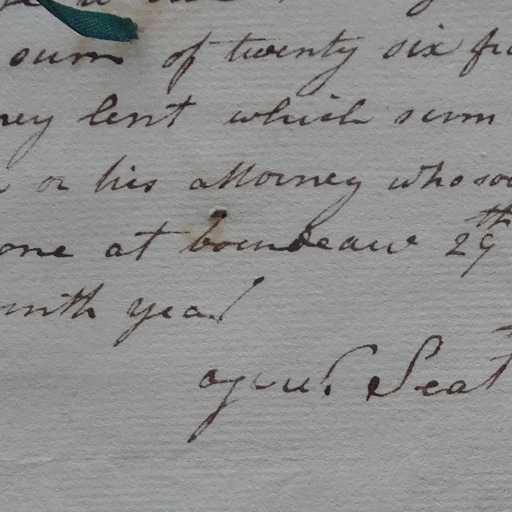 sum of twenty six
ney lent which sum
or his attorney who
one at bourdeaux 29th
nth year
Seat